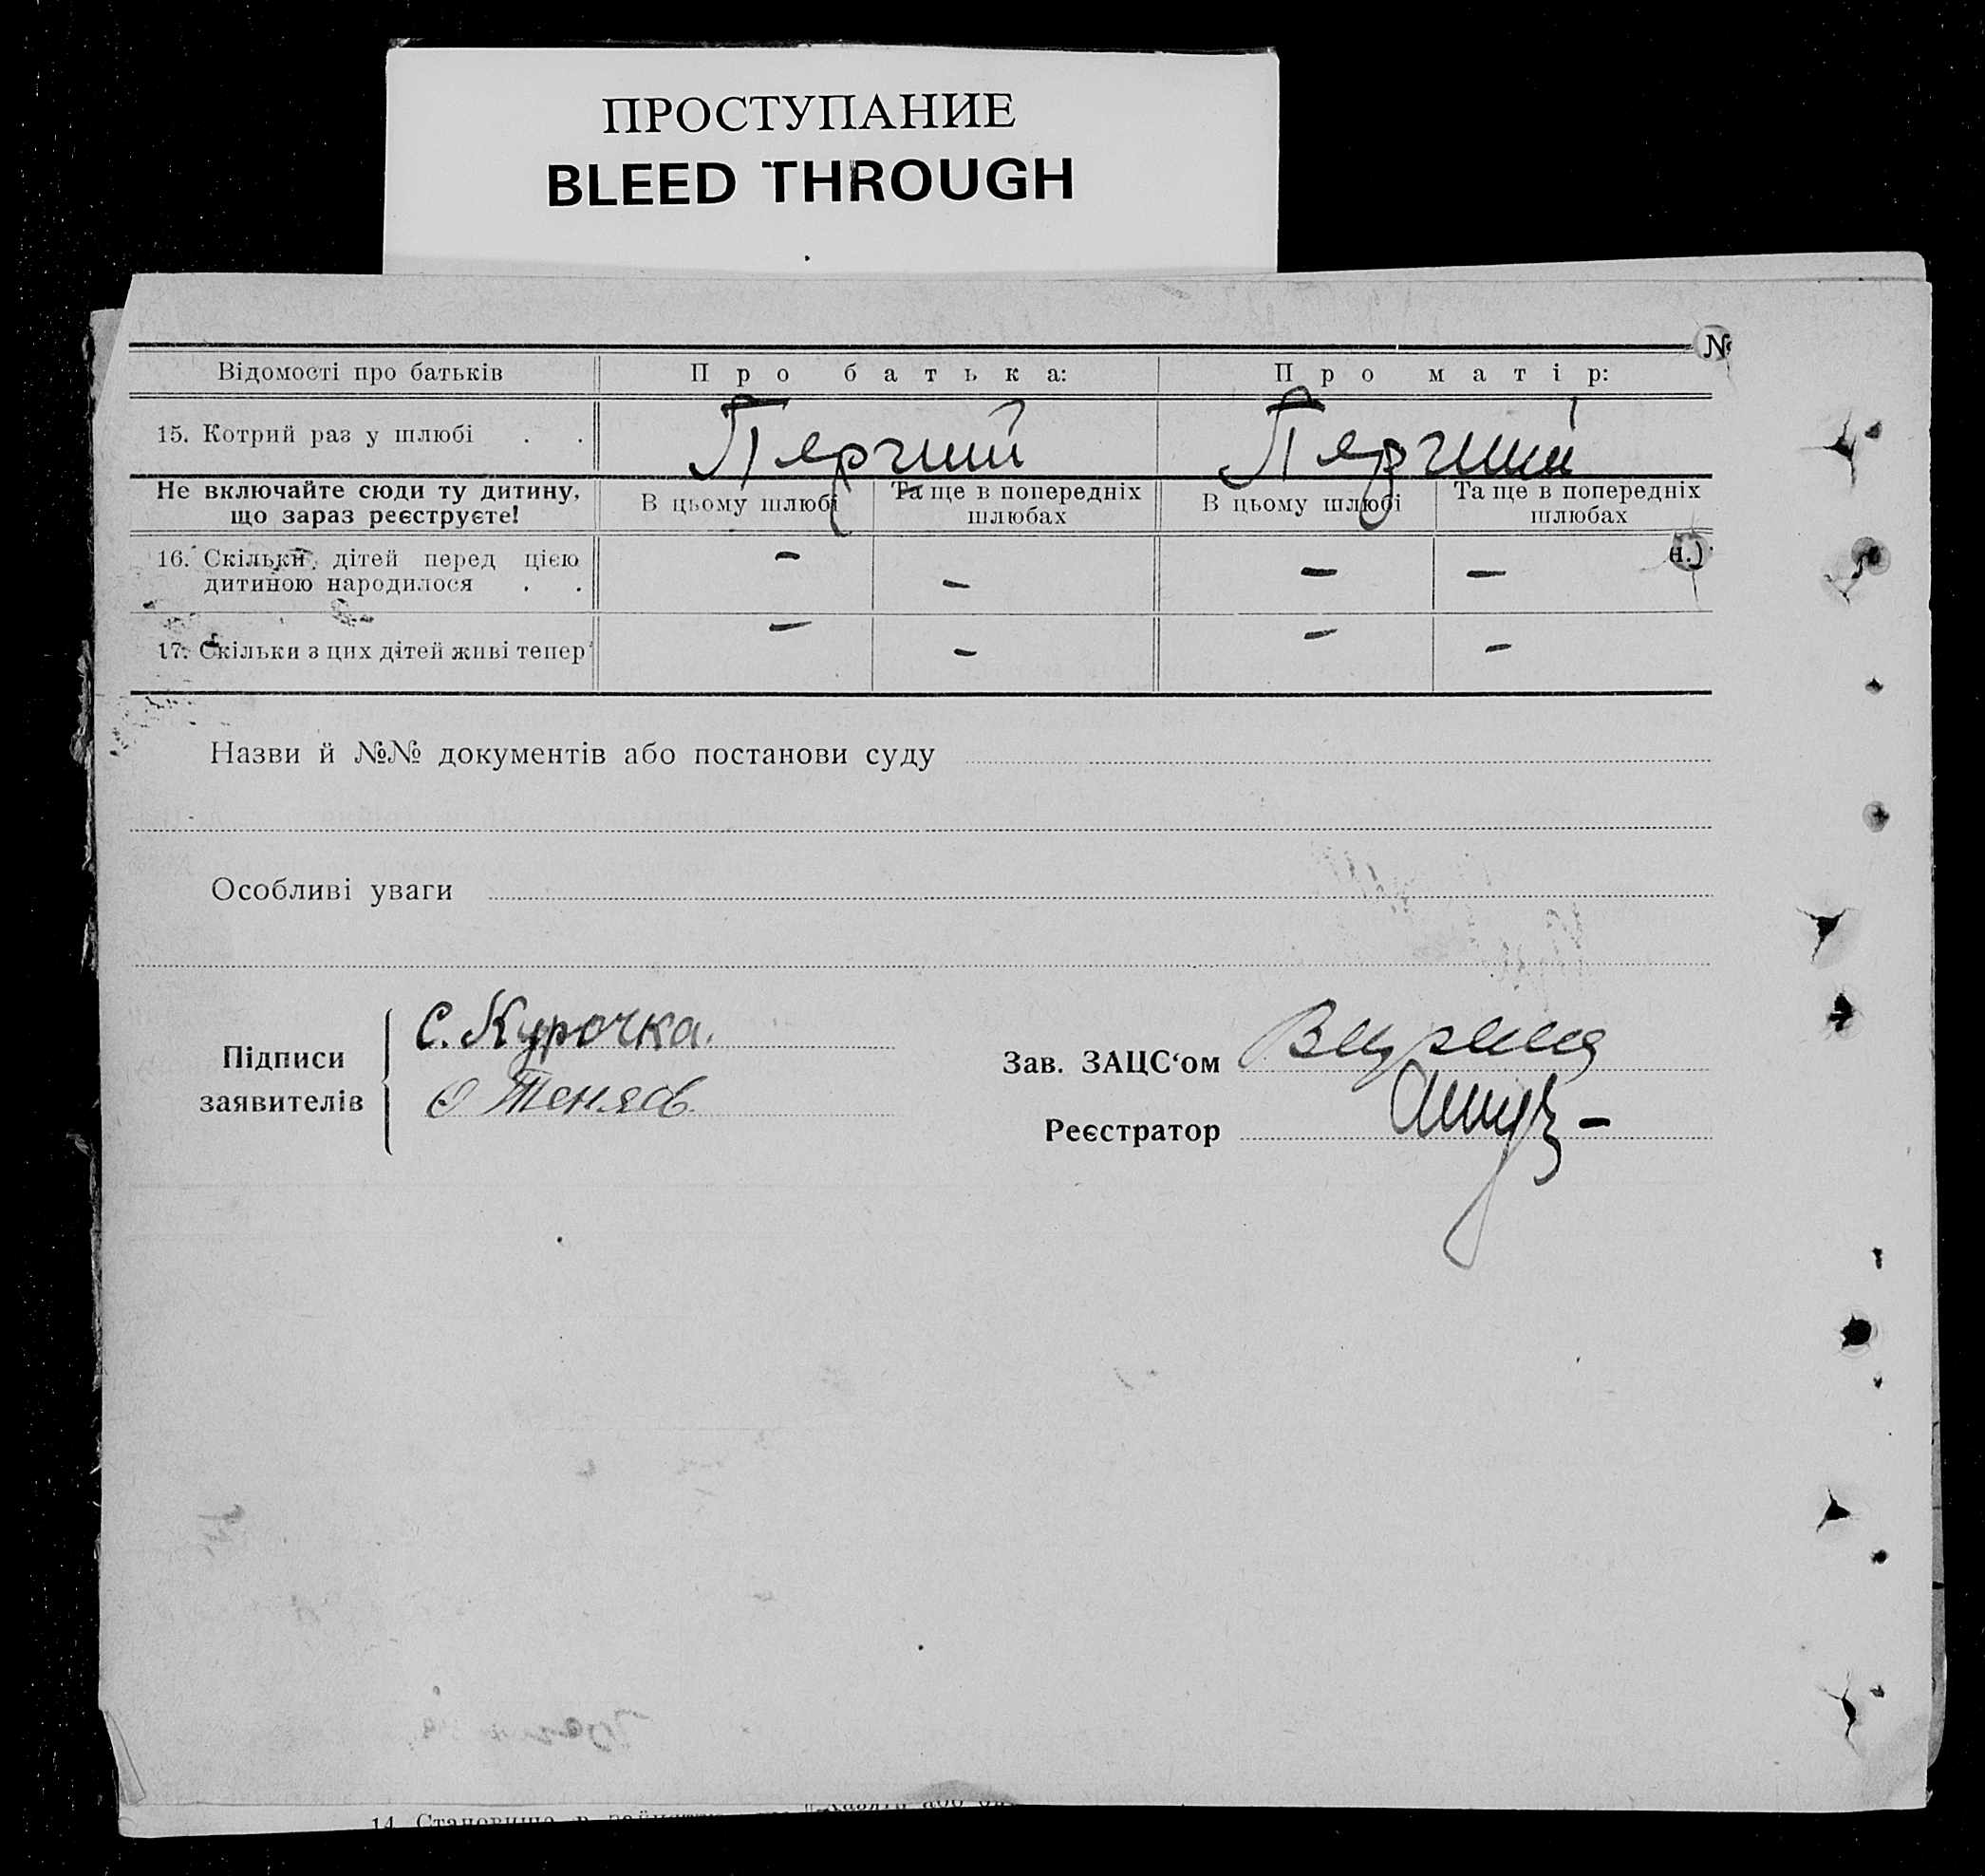 ПРОСТУПАНИЕ
BLEED THROUGH
№
Відомості про батьків Про батька: Про матір:
15. Котрий раз у шлюбі . . Перчий Перчий
Не включайте сюди ту дитину, що зараз реєструєте! В цьому шлюбі Та ще в попередніх шлюбах В цьому шлюбі Та ще в попередніх шлюбах
н.)
16. Скільки дітей перед цією дитиною народилося . . – – – –
17. Скільки з цих дітей живі тепер – – – –
Назви й №№ документів або постанови суду
Особливі уваги
Підписи заявителів
С. Курочка.
Зав. ЗАЦС‘ом
Реєстратор
14. Становище в